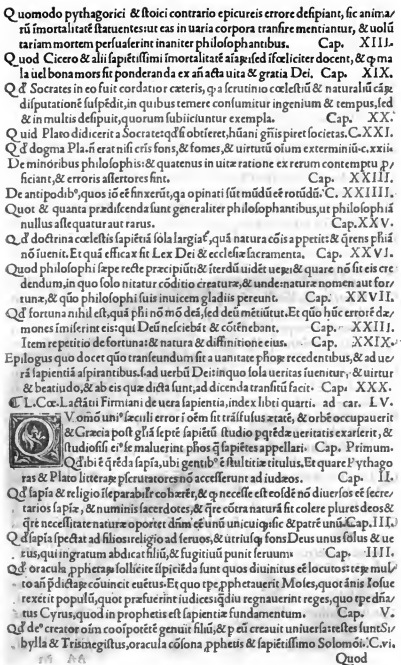 Quomodo pythagorici & stoici contrario epicureis errore desipiant, sic anima/
rū īmortalitatē statuentes: ut eas in uaria corpora transire mentiantur, & uolū
tariam mortem persuaserint inaniter philosophantibus. Cap. XIIX.
Quod Cicero & alii sapiētissimi īmortalitatē
la uel bona mors sit ponderanda ex āacta uita & gratia Dei. Cap. XIX.
Qđ Socrates in eo fuit cordatior cæteris, ꝙ a scrutinio cœlestiū & naturaliū
disputatione suspēdit, in quibus temere consumitur ingenium & tempus, sed
& in multis desipuit, quorum subiiciuntur exempla. Cap. XX.
Quid Plato didicerit a Socrate: societas. C.XXI.
Qđ dogma Pla.n̄ erat nisi eris fons, & fomes, & uirtutū oīum exterminiū. c.xxii.
De minoribus philosophis: & quatenus in uitæ ratione ex rerum contemptu p/
ficiant, & erroris assertores sint. Cap. XXIII.
De antipodib⁹, quos iō eē finxerūt, qa opinati sūt mūdū eē rotūdū. C. XXIIII.
Quot & quanta prædiscenda sunt generaliter philosophantibus, ut philosophiā
nullus assequatur aut rarus. Cap. XXV.
Qđ doctrina cœlestis sapiētiā sola largiat, quā natura cōis appetit: & q̄rens phīa
nō īuenit. Et qua efficax sit Lex Dei & ecclesiæ sacramenta. Cap. XXVI.
Quod philosophi sæpe recte præcipiūt: & īterdū uidēt & quare nō sit eis cre
dendum, in quo solo nitatur cōditio creaturæ, & unde naturæ nomen aut for-
tunæ, & quo philosophi suis inuicem gladiis pereunt. Cap. XXVII.
Qđ fortuna nihil est, quā phī nō mō deā, sed deū mētiūtur. Et quo hūc errorē dæ/
mones īmiserint eis: qui Deū nesciebāt & cōtēnebant. Cap. XXIIX.
Item repetitio de fortuna: & natura & diffinitione eius. Cap. XXIX.
Epilogus quo docet quo transeundum sit a uanitate recedentibus, & ad ue/
rā sapientiā aspirantibus. s. ad uerbū Dei: in quo sola ueritas īuenitur, & uirtus
& beatiudo, & ab eis quæ dicta sunt, ad dicenda transitū facit. Cap. XXX.
¶ L. Cœ. Lactātii Firmiani de uera sapientia, index libri quarti. ad car. LV.
QVomō uni⁹ sæculi error ī oēm sit trāsfusus ætatē, & orbē occupauerit
& Græcia post gl̄iā septē sapiētū studio ueritatis exarserit, &
studiosissi ei⁹ se maluerint phos q̄ sapiētes appellari. Cap. Primum.
Qđ ibi ē q̄rēda sapīa, ubi gentib⁹ ē stultitiæ titulus. Et quare Pythago
ras & Plato litteraꝝ pscrutatores nō accesserunt ad iudæos. Cap. II.
Qđ sapīa & religio īseparabilr cohærēt, & ꝙ necesse est eosdē nō diuersos eē secre/
tarios sapīæ, & numinis sacerdotes, & q̄re cōtra naturā sit colere plures deos &
q̄re necessitate naturæ oportet dn̄m eē unū unicuiq̨: sic & patrē unū. Cap. III.
Qđ sapīa spectat ad filios: religio ad seruos, & utriusq̨ fons Deus unus solus & ue
rus, qui ingratum abdicat filiū, & fugitiuū punit seruum. Cap. IIII.
Qđ oracula, pphetaꝝ sollicite īspiciēda sunt quos diuinitus eē locutos:
to an p̄dictaꝝ couincit euētus. Et quo tpe, pphetauerit Moses, quot ānis
rexerit populū, quot præfuerint iudices: qdiu regnauerint reges, quo tpe
tus Cyrus, quod in prophetis est sapientiæ fundamentum. Cap. V.
Qđ de⁹ creator oīm cooīpotētē genuit filiū, & p eū creauit uniuersa: testes sunt Si/
bylla & Trismegistus, oracula cōsona, pphetis & sapiētissimo Solomōi. C.vi.
Quod